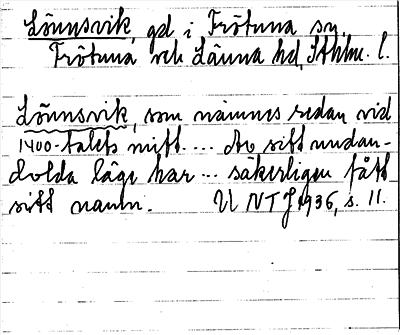 Lönnsvik, gd i Frötuna sn,
Frötuna och Länna hd, Sthlm. l.
Lönnsvik, som nämnes redan vid
1400-talets mitt.... Av sitt undan-
dolda läge har ... säkerligen fått
sitt namn. U NTJ 1936, s. 11.